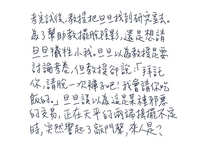 考完試後，教授把旦旦找到研究室去。
為了幫助教授擺脫陰影，還是想請
旦旦犧牲小我。旦旦以為教授是要
討論考卷，但教授卻說：「拜託
你，請脫一次褲子吧！我會請你吃
飯的。」旦旦誤以為這是某種邪惡
的交易，正在天平的兩端搖擺不定
時，突然響起了敲門聲，來人是？